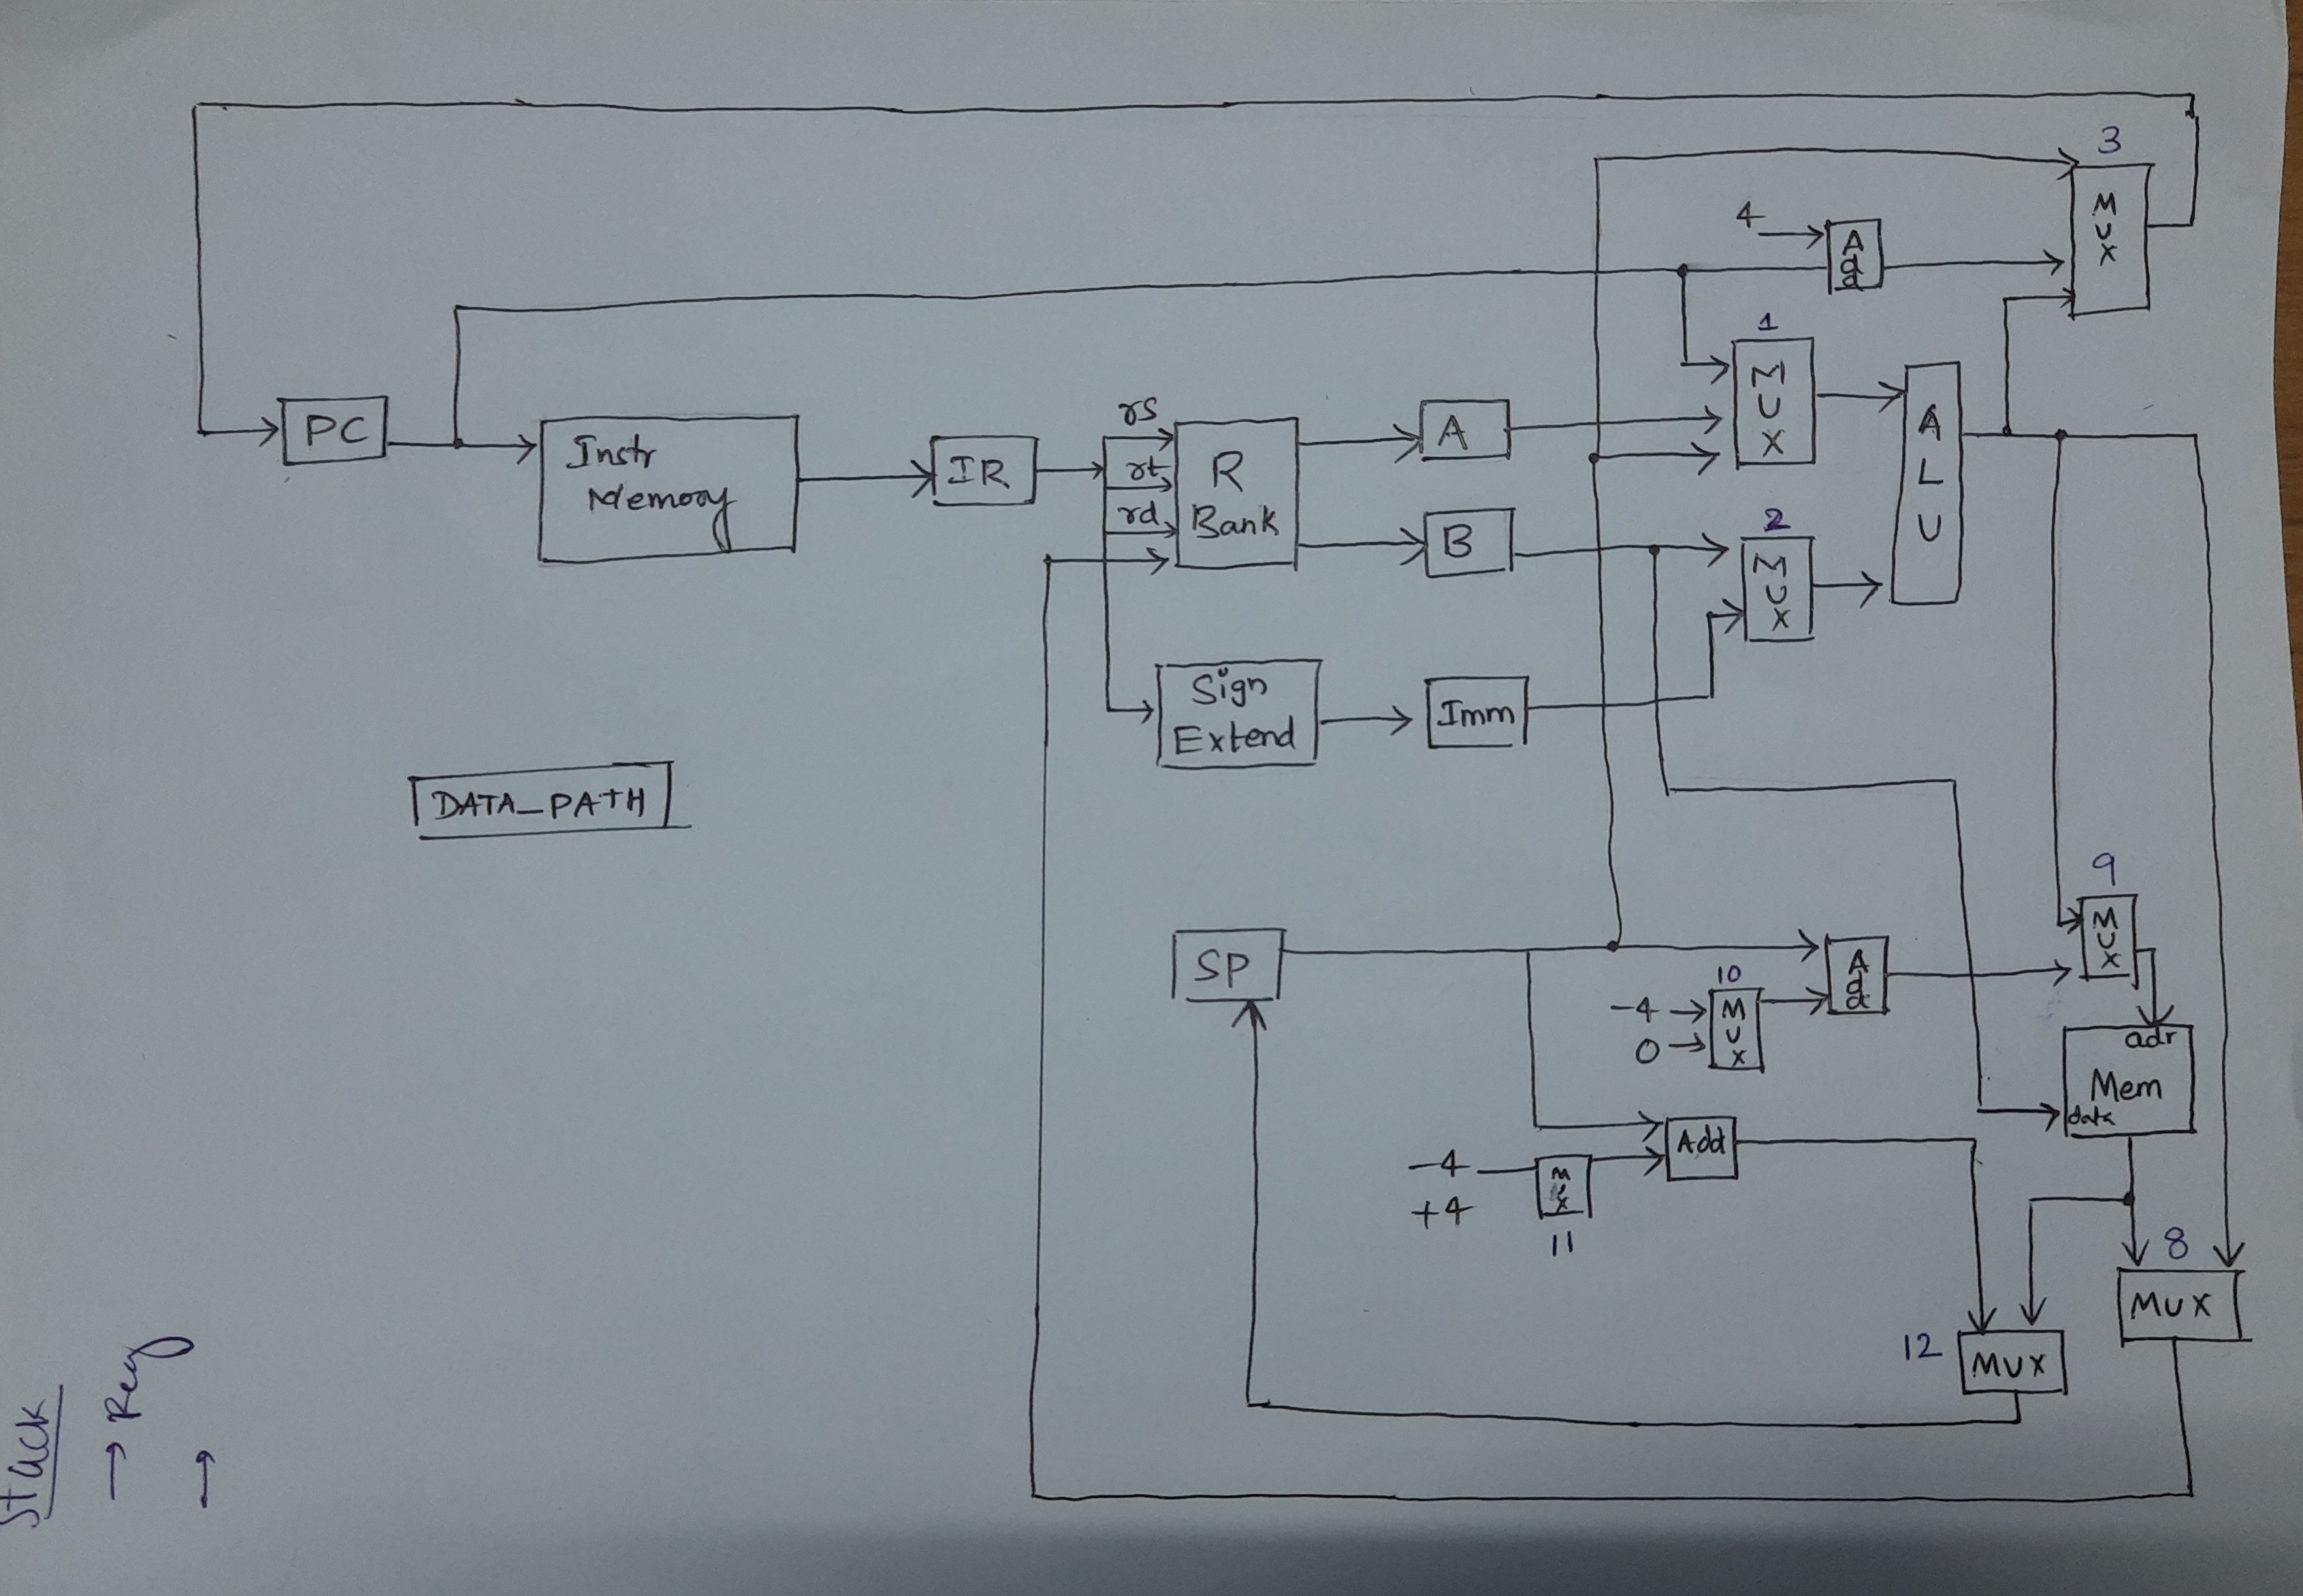 3
M
U
X
4
A
d
d
1
M
U
X
PC
Instr
Memory
IR
rs
rt
rd
R
Bank
A
B
A
L
U
2
M
U
X
Sign
Extend
Imm
DATA_PATH
9
M
U
X
SP
A
d
d
10
-4
0
M
U
X
adr
Mem
data
Add
-4
+4
M
U
X
11
8
MUX
12
MUX
Stack
→ Reg
→